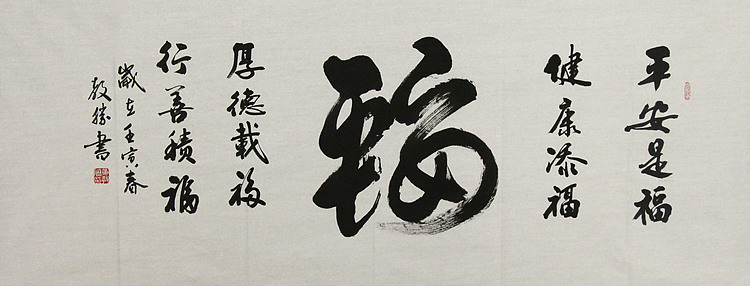 平安是福
健康添福
福
厚德載福
行善積福
歲在壬寅春
書